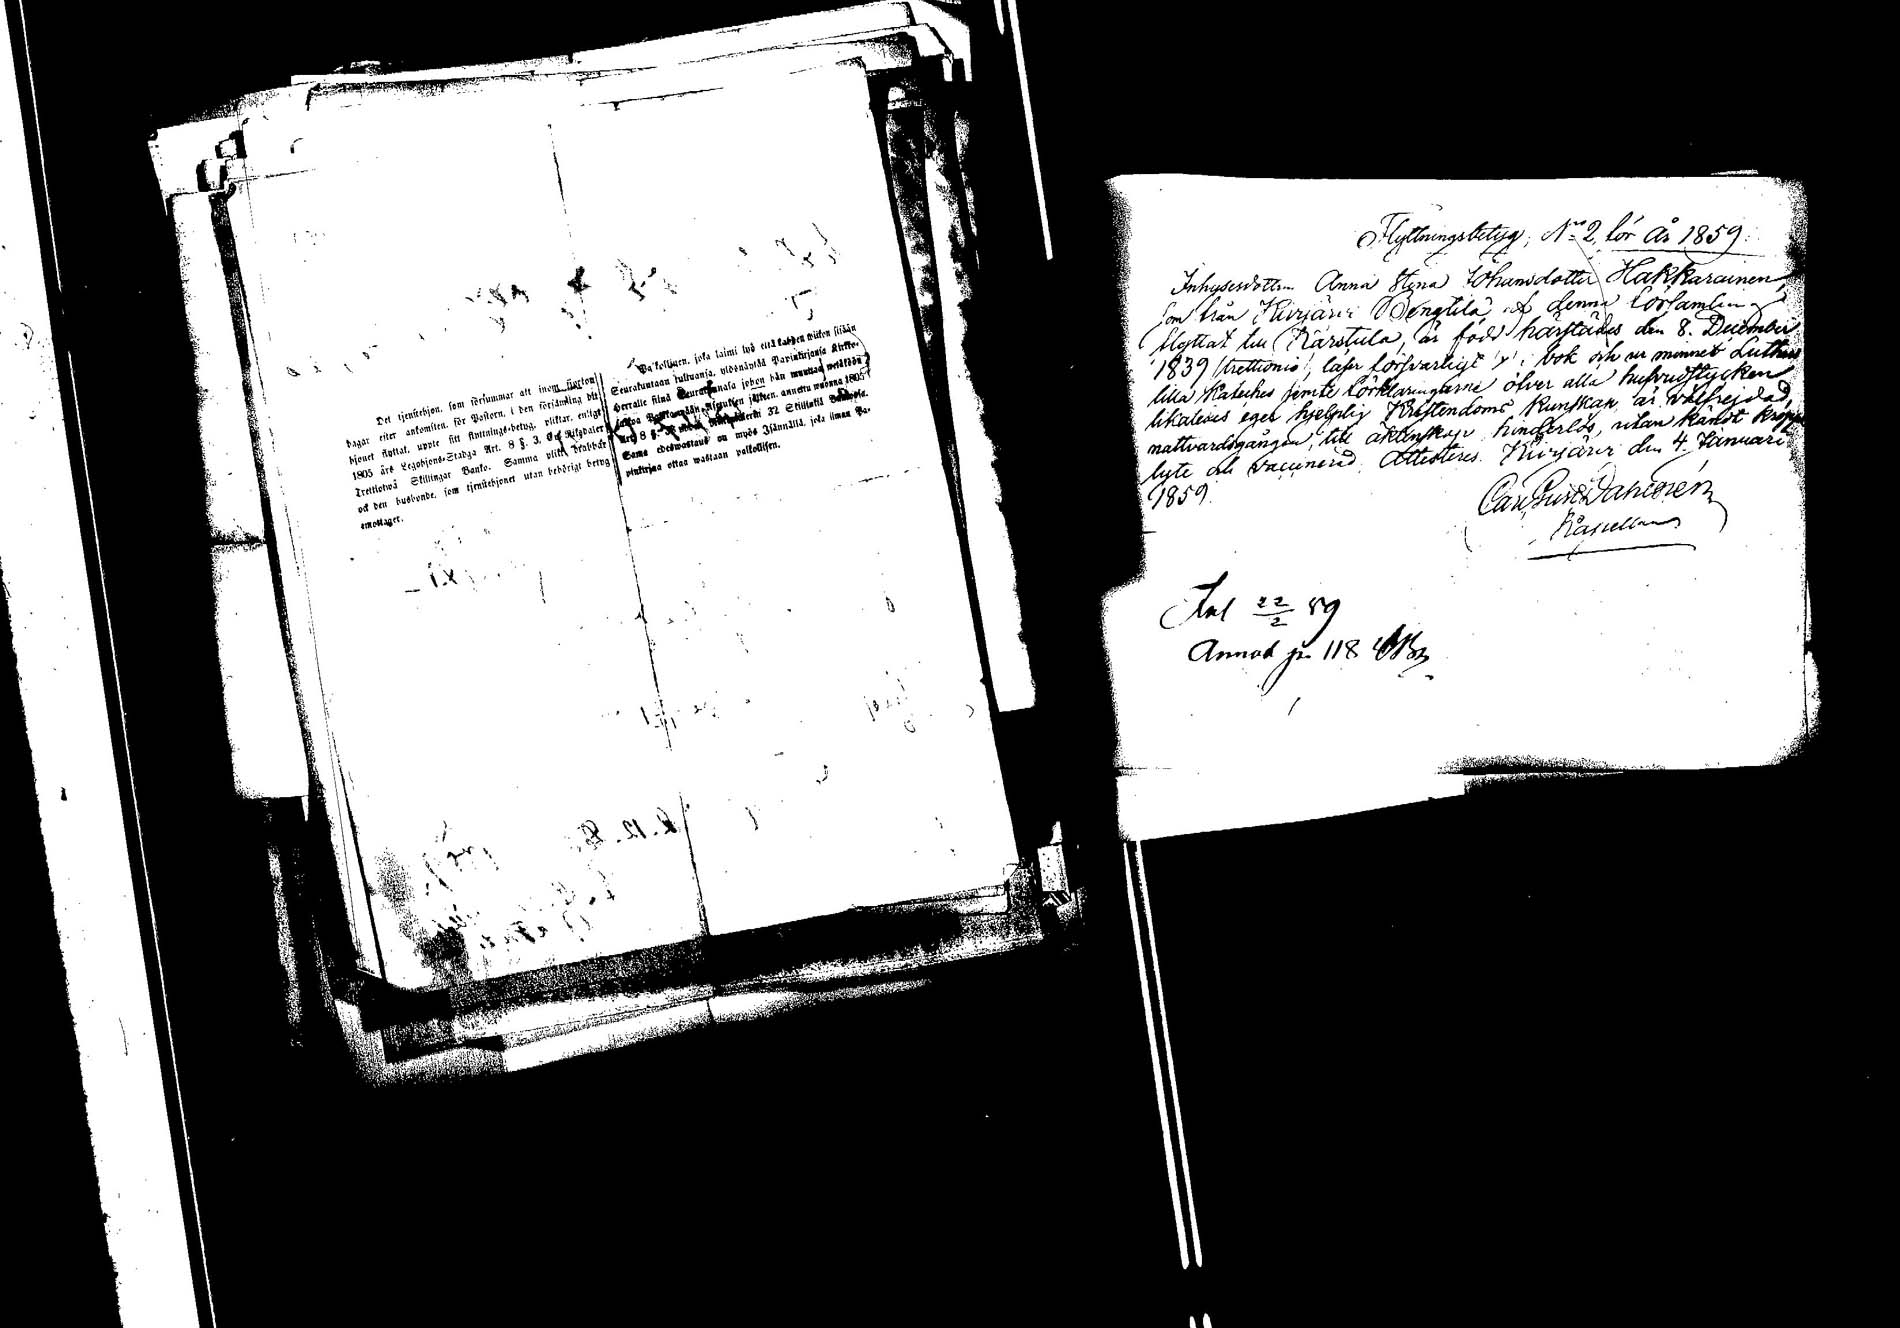 Det tjenstehjon, som försummar att inom fjorton
dagar efter ankomsten, för Pastorn, i den församling dit
hjonet flyttat, uppte sitt flyttnings-betyg, pliktar, enligt
1805 års Legohjons-Stadga Art. 8 §. 3. Riksdaler
Trettiotwå Skillingar Banko. Samma plikt
ock den husbonde, som tjenstehjonet utan behörigt betyg
emottaget.
Palkollisen, joka laimi lyö että sisään
Seurakuntaan tultuansa, ylösnäyttää Papinkirjansa Kirkko-
Herralle siinä Seurakunnassa johon hän muuttaa
annettu wuonna 1805
Art. 8 §. 32 Skillinkiä
Sama edeswastaus on myös Isännällä, joka ilman Pa-
pinkirjaa ottaa wastaan palkollisen.
Flyttningsbetyg, No 2 för år 1859.
Inhysesdottren Anna Stina Johansdotter Hakkarainen,
som från Kivijärvi Bengtilä, af denna församling
flyttat till Karstula, är född härstädes den 8. December
1839 (trettionio), läser försvarligt i bok och ur minnet Luthers
lilla Kateches jemte förklaringarne öfver alla hufvudstycken
likaledes eger hjelplig Kristendoms kunskap, är välfrejdad,
nattvardsgången, till äktenskap hinderlös, utan kändt
lyte och vaccinerad. Attesteres. Kivijärvi den 4. Januari
1859.
Carl Gust. Dahlgrén
Kapellan
22/2 59
Annot p. 118